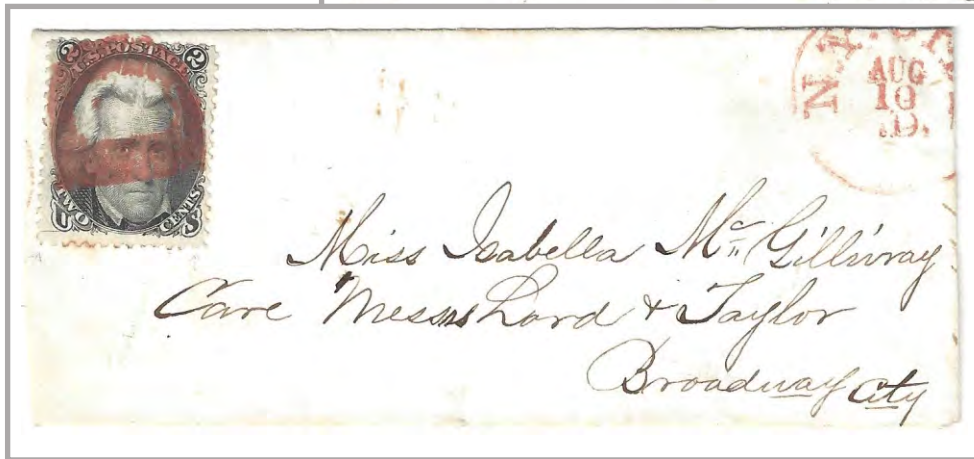 2 U.S. POSTAGE 2
U TWO CENTS S
N.Y. 
AUG
10
D.
Miss Isabella Mc Gillivray
Care Messrs Lord & Taylor
Broadway City